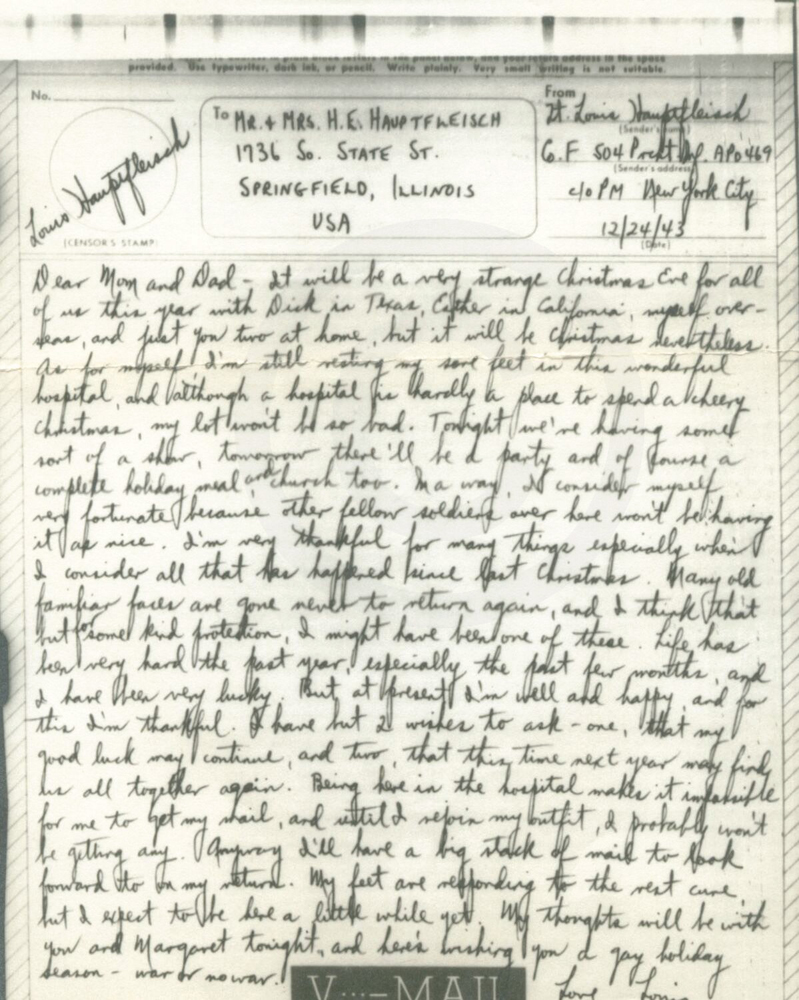 provided. Use typewriter, dark ink, or pencil. Write plainly. Very small writing is not suitable.
No.
Louis Hauptfleisch
(CENSOR'S STAMP)
To
MR. & MRS. H.E. HAUPTFLEISCH
1736 SO. STATE ST.
SPRINGFIELD, ILLINOIS
USA
From
Lt. Louis Hauptfleisch
(Sender's name)
G.F 504 Prcht Inf. APO 469
(Sender's address)
c/o PM New York City
12/24/43
(Date)
Dear Mom and Dad - It will be a very strange Christmas Eve for all
of us this year with Dick in Texas, Esther in California, myself over-
seas, and just you two at home, but it will be Christmas nevertheless.
As for myself, I'm still resting my sore feet in this wonderful
hospital, and although a hospital is hardly a place to spend a cheery
Christmas, my lot won't be so bad. Tonight we're having some
sort of a show, tomorrow there'll be a party and of course a
complete holiday meal and church too. In a way, I consider myself
very fortunate because other fellow soldiers over here won't be having
it as nice. I'm very thankful for many things especially when
I consider all that has happened since last Christmas. Many old
familiar faces are gone never to return again, and I think that
but for some kind protection, I might have been one of these. Life has
been very hard the past year, especially the past few months, and
I have been very lucky. But at present I'm well and happy, and for
this I'm thankful. I have but 2 wishes to ask - one, that my
good luck may continue, and two, that this time next year may find
us all together again. Being here in the hospital makes it impossible
for me to get my mail, and until I rejoin my outfit, I probably won't
be getting any. Anyway I'll have a big stack of mail to look
forward to on my return. My feet are responding to the rest cure
but I expect to be here a little while yet. My thoughts will be with
you and Margaret tonight, and here's wishing you a gay holiday
season - war or no war.
Love Louis
V···—MAIL